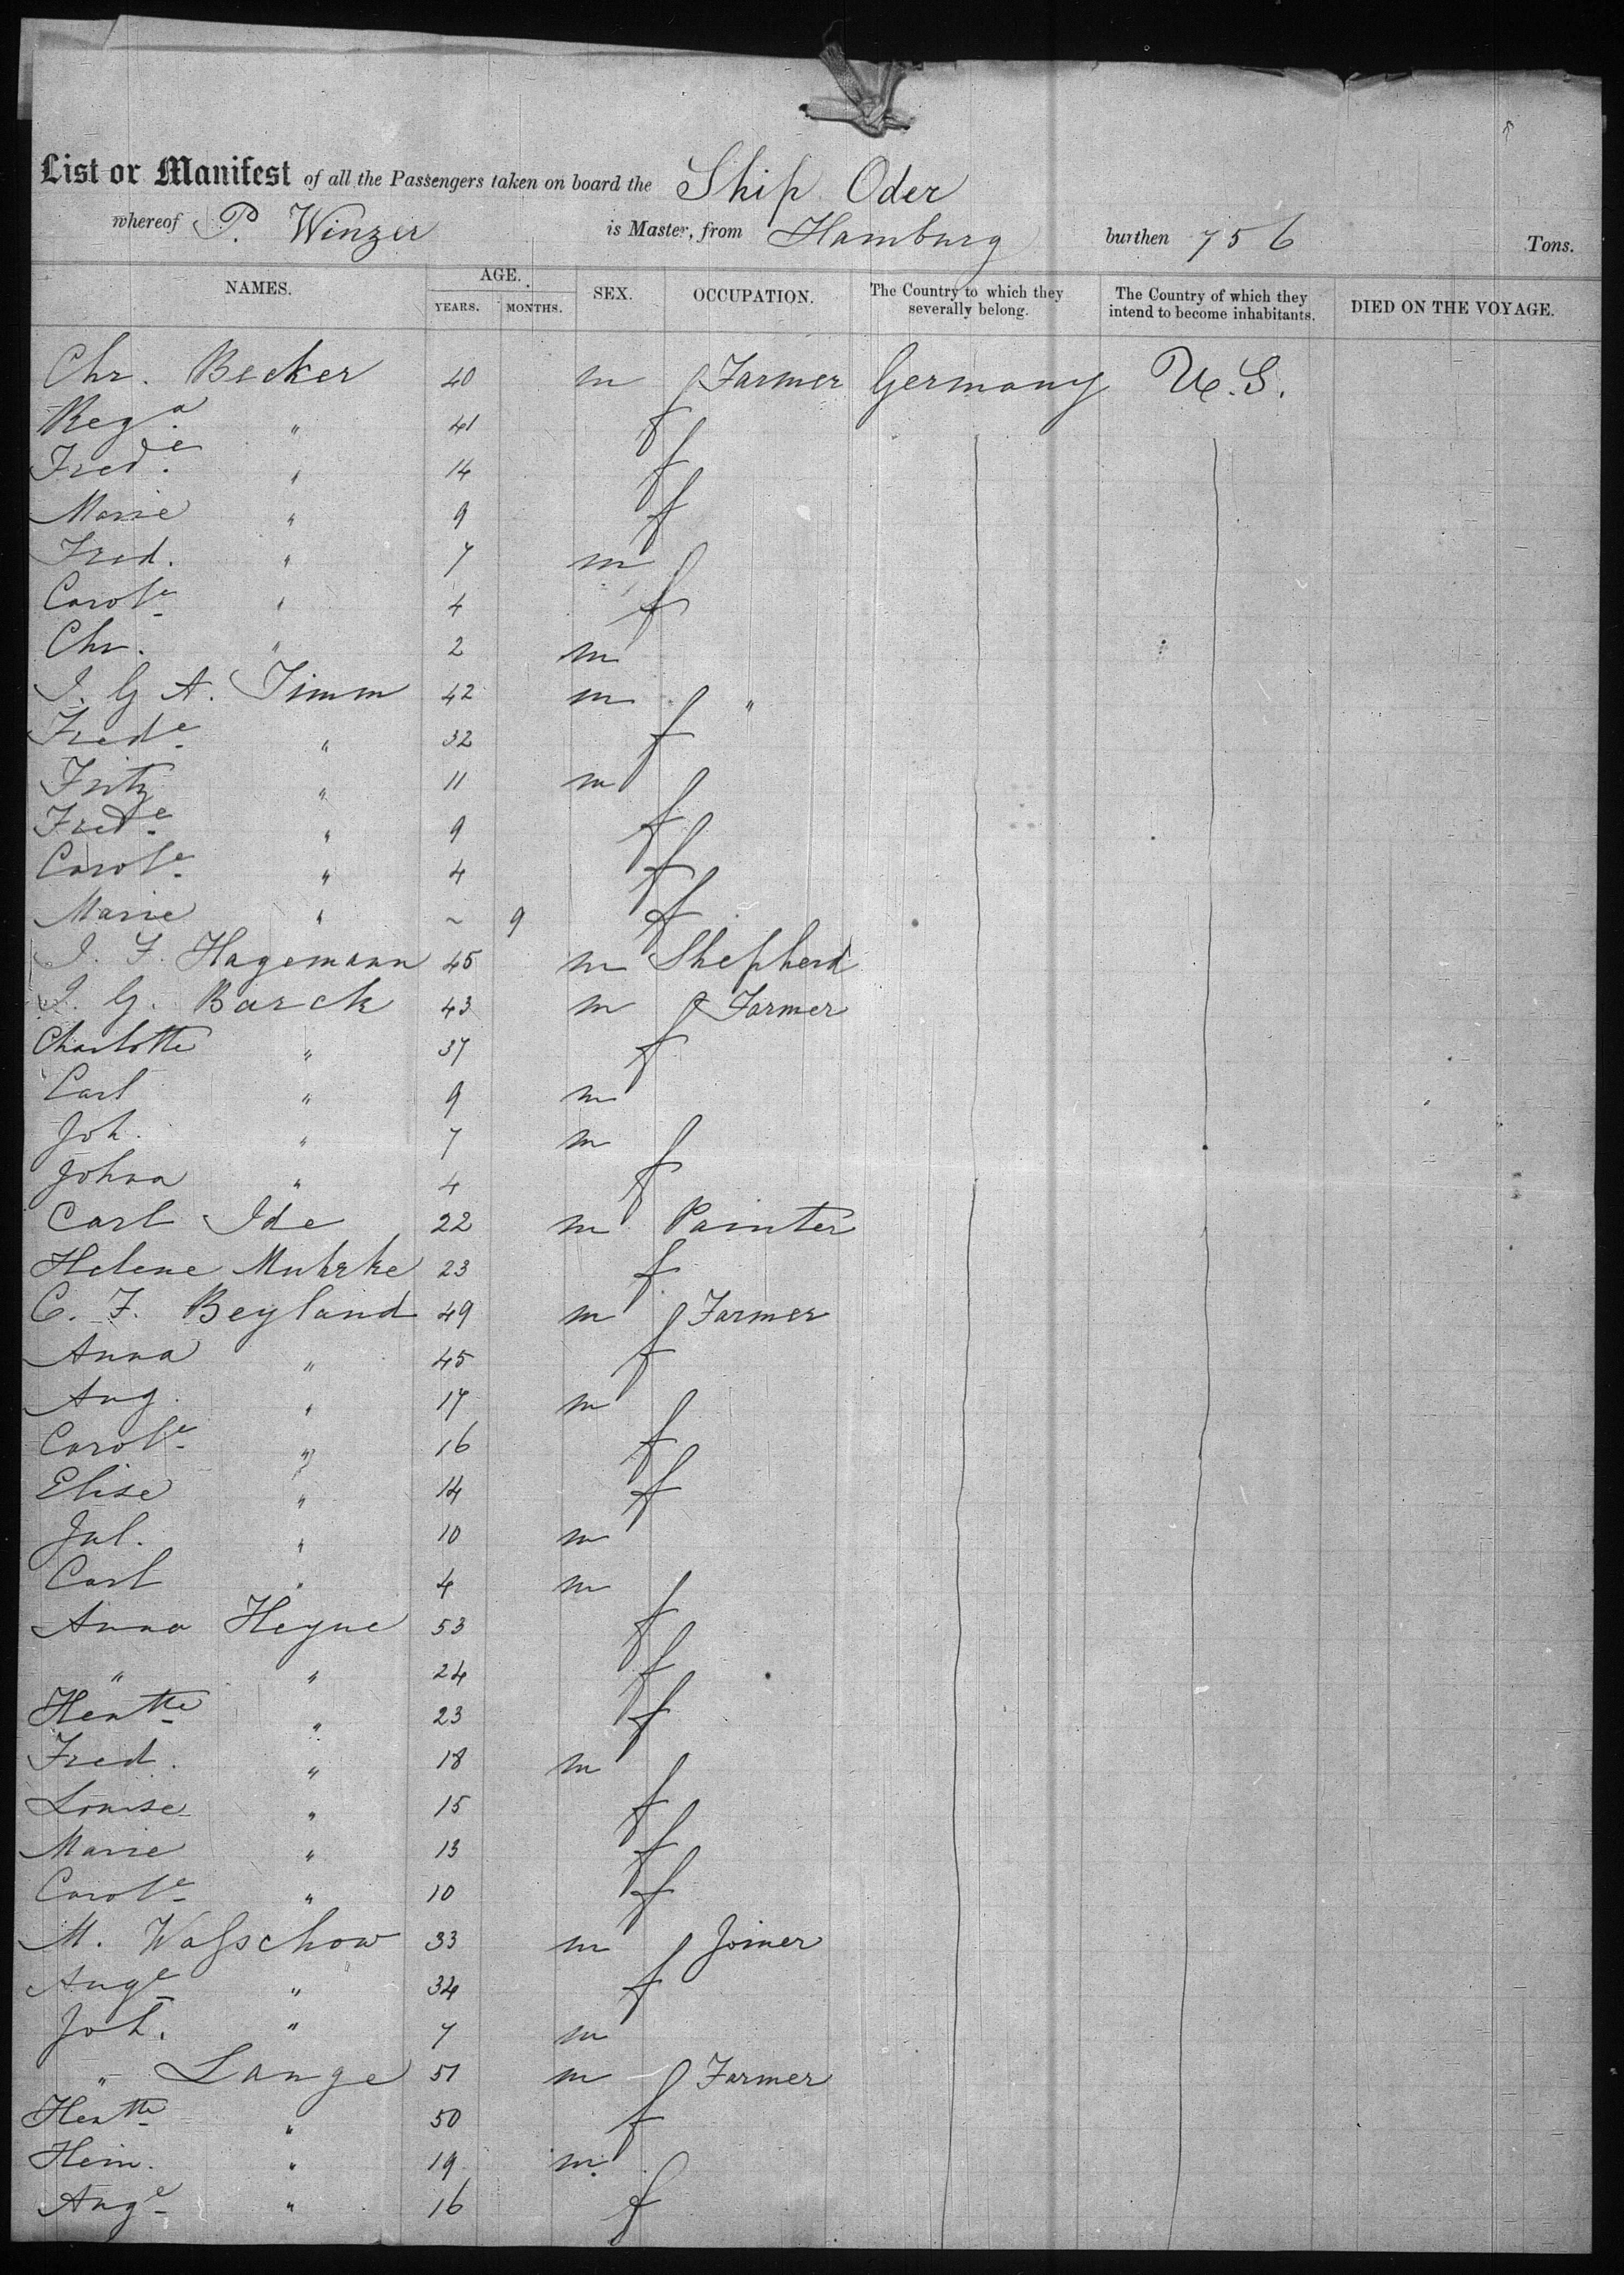 List or Manifest of all the Passengers taken on board the Ship Oder
whereof P. Winzer is Master, from Hamburg burthen 756 Tons.
NAMES. AGE. YEARS. MONTHS. SEX. OCCUPATION. The Country to which they severally belong. The Country of which they intend to become inhabitants. DIED ON THE VOYAGE.
Chr. Becker 40 m Farmer Germany U.S.
Rega. " 41 f
Frede. " 14 f
Marie " 9 f
Fred. " 7 m
Carole " 4 f
Chr. " 2 m
J. G A. Timm 42 m "
Frede " 32 f
Fritz " 11 m
Frede " 9 f
Carole " 4 f
Marie " ~ 9 f
J. F. Hagemann 45 m Shepherd
J. G. Barck 43 m Farmer
Charlotte " 37 f
Carl " 9 m
Joh. " 7 m
Johna " 4 f
Carl Ide 22 m Painter
Helene Muhrke 23 f
C. F. Beyland 49 m Farmer
Anna " 45 f
Aug. " 17 m
Carole " 16 f
Elise " 14 f
Jul. " 10 m
Carl " 4 m
Anna Heyne 53 f
" " 24 f
Hentte " 23 f
Fred. " 18 m
Louise " 15 f
Marie " 13 f
Carole " 10 f
M. Waſschow 33 m Joiner
Auge " 34 f
Joh. " 7 m
" Lange 51 m Farmer
Hentte " 50 f
Hein. " 19 m
Auge " 16 f